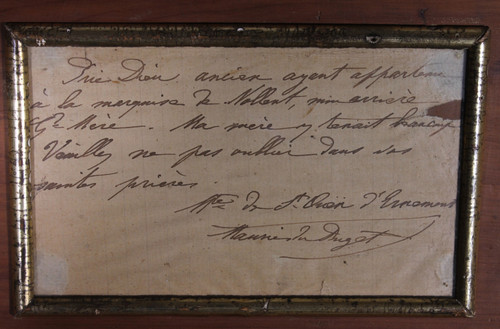 Prie Dieu ancien ayant appartenu
à la marquise de Nollent, mon arrière
Gde Mère. Ma mère y tenait beaucoup
Veuillez ne pas oublier dans vos
saintes prières.
Mse de St Ouën d'Ernemont
du Puget